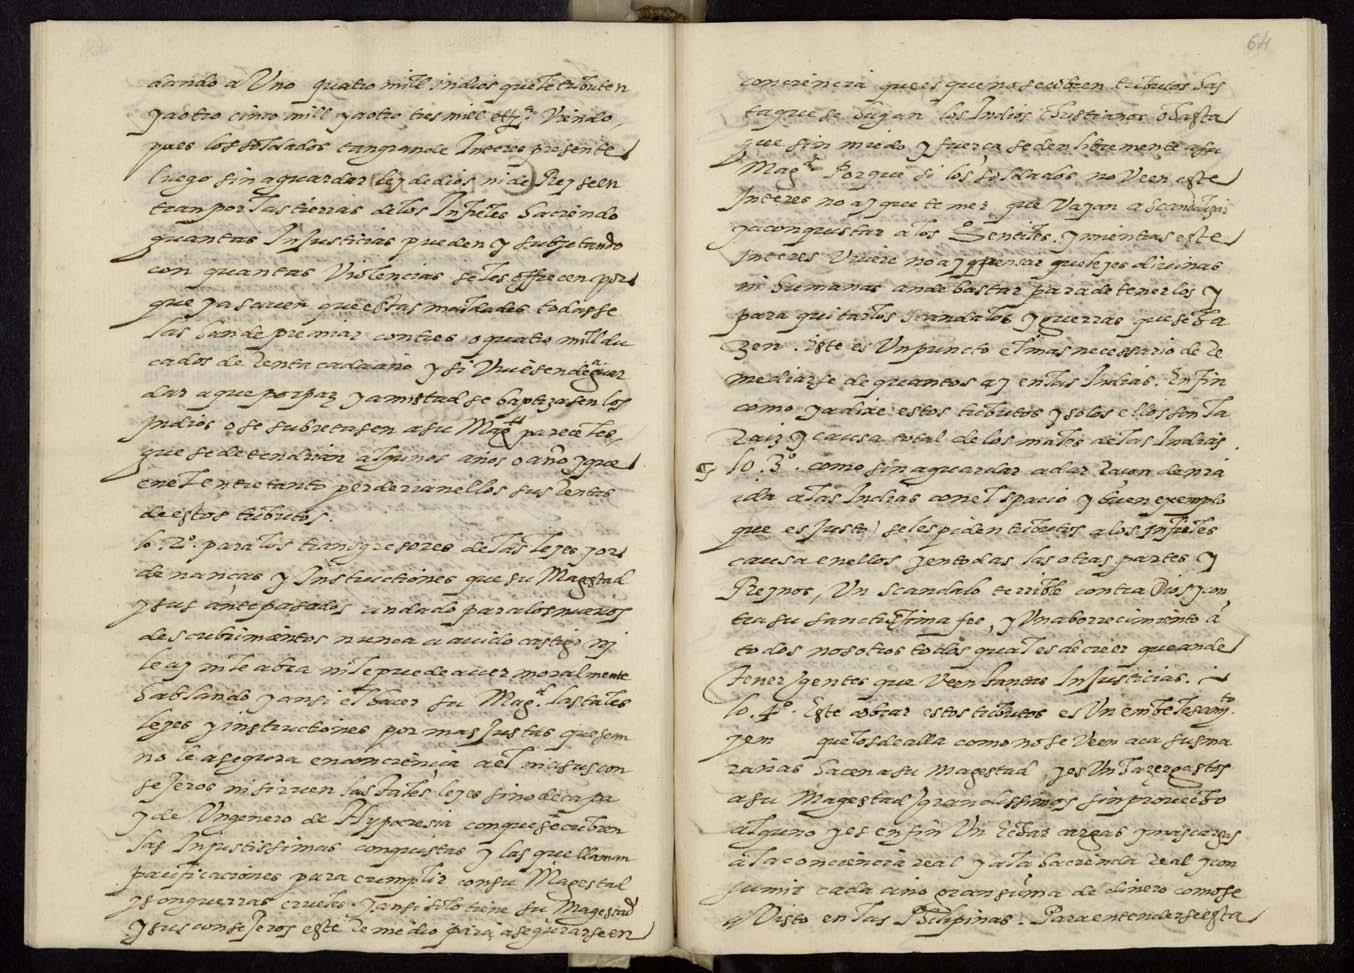 dando a Uno quatro mill indios que le tributen
y a otro cinco mill y a otro tres mill Viendo
pues los soldados tan grande Interes presente
luego sin aguardar (ley de dios, ni de) Rey se en
tran por las tierras de los Infieles haciendo
quantas Injusticias pueden y subjetando
con quantas Violencias se les offrecen por
que ya saven que estas maldades todas se
las han de premiar con tres o quatro mill du
cados de Renta cada año y si Vuiesen de aguar
dar a que por paz y amistad se baptizasen los
Indios o se subietasen a su Magd pareceles
que se detendrian algunos años o año y que
en el entretanto perderian ellos sus Rentas
de estos tributos.
lo .2º. para los transgresores de las leyes y or
denanças y Instructiones que su Magestad
y sus antepasados an dado para los nueuos
descubrimientos nunca a auido castigo nj
le ay ni le abra ni le puede auer moralmente
hablando y ansi el hacer su Magd. las tales
leyes y instructiones por mas Justas que sean
no le asegura en conciencia a el ni a sus con
sejeros ni siruen las tales leyes sino de capa
y de Un genero de Hypocresia con que se cubren
las Injustissimas conquistas y las que llaman
pacificaciones para cumplir con su Magestad
y son guerras crueles. y ansi solo tiene su Magestad
y sus consejeros este Remedio para asegurarse en
64
conciencia que es que no se cobren tributos has
ta que se hagan los Indios christianos o hasta
que sin miedo y fuerça se den libremente a su
Magd. Porque si los soldados no Veen este
Interes no ay que temer que Vayan a scandalizar
y a conquistar a los Gentiles. y mientras este
Interes Viuiere no ay q pensar que leyes diuinas
ni humanas an de bastar para detenerlos y
para quitar los scandalos y guerras que se ha
zen. Este es Un puncto el mas necessario de Re
mediarse de quantos ay en las Indias. En fin
como ya dixe estos tributos y solos ellos son la
Raiz y causa total de los males de las Indias.
lo .3º. como sin aguardar a dar Raçon de nra
ida a las Indias con el spacio y buen exemplo
que es Justo) se les piden tributos a los Infieles
causa en ellos y en todas las otras partes y
Reynos, Un scandalo terrible contra Dios y con
tra su sanctissima fee, y Un aborrecimiento a
todos nosotros todos qual es de creer que an de
tener gentes que Veen tantas Injusticias.
lo .4º. Este cobrar estos tributos es Un embelesamto.
que los de alla como no se Veen aca sus ma
rañas hacen a su Magestad, y es Un hazer gastos
a su Magestad grandissimos sin prouecho
alguno y es en fin Un Echar cargas y mas cargas
a la conciencia real y a la hacienda real y con
sumir cada año gran suma de dinero como se
a Visto en las Philipinas. Para entenderse esta